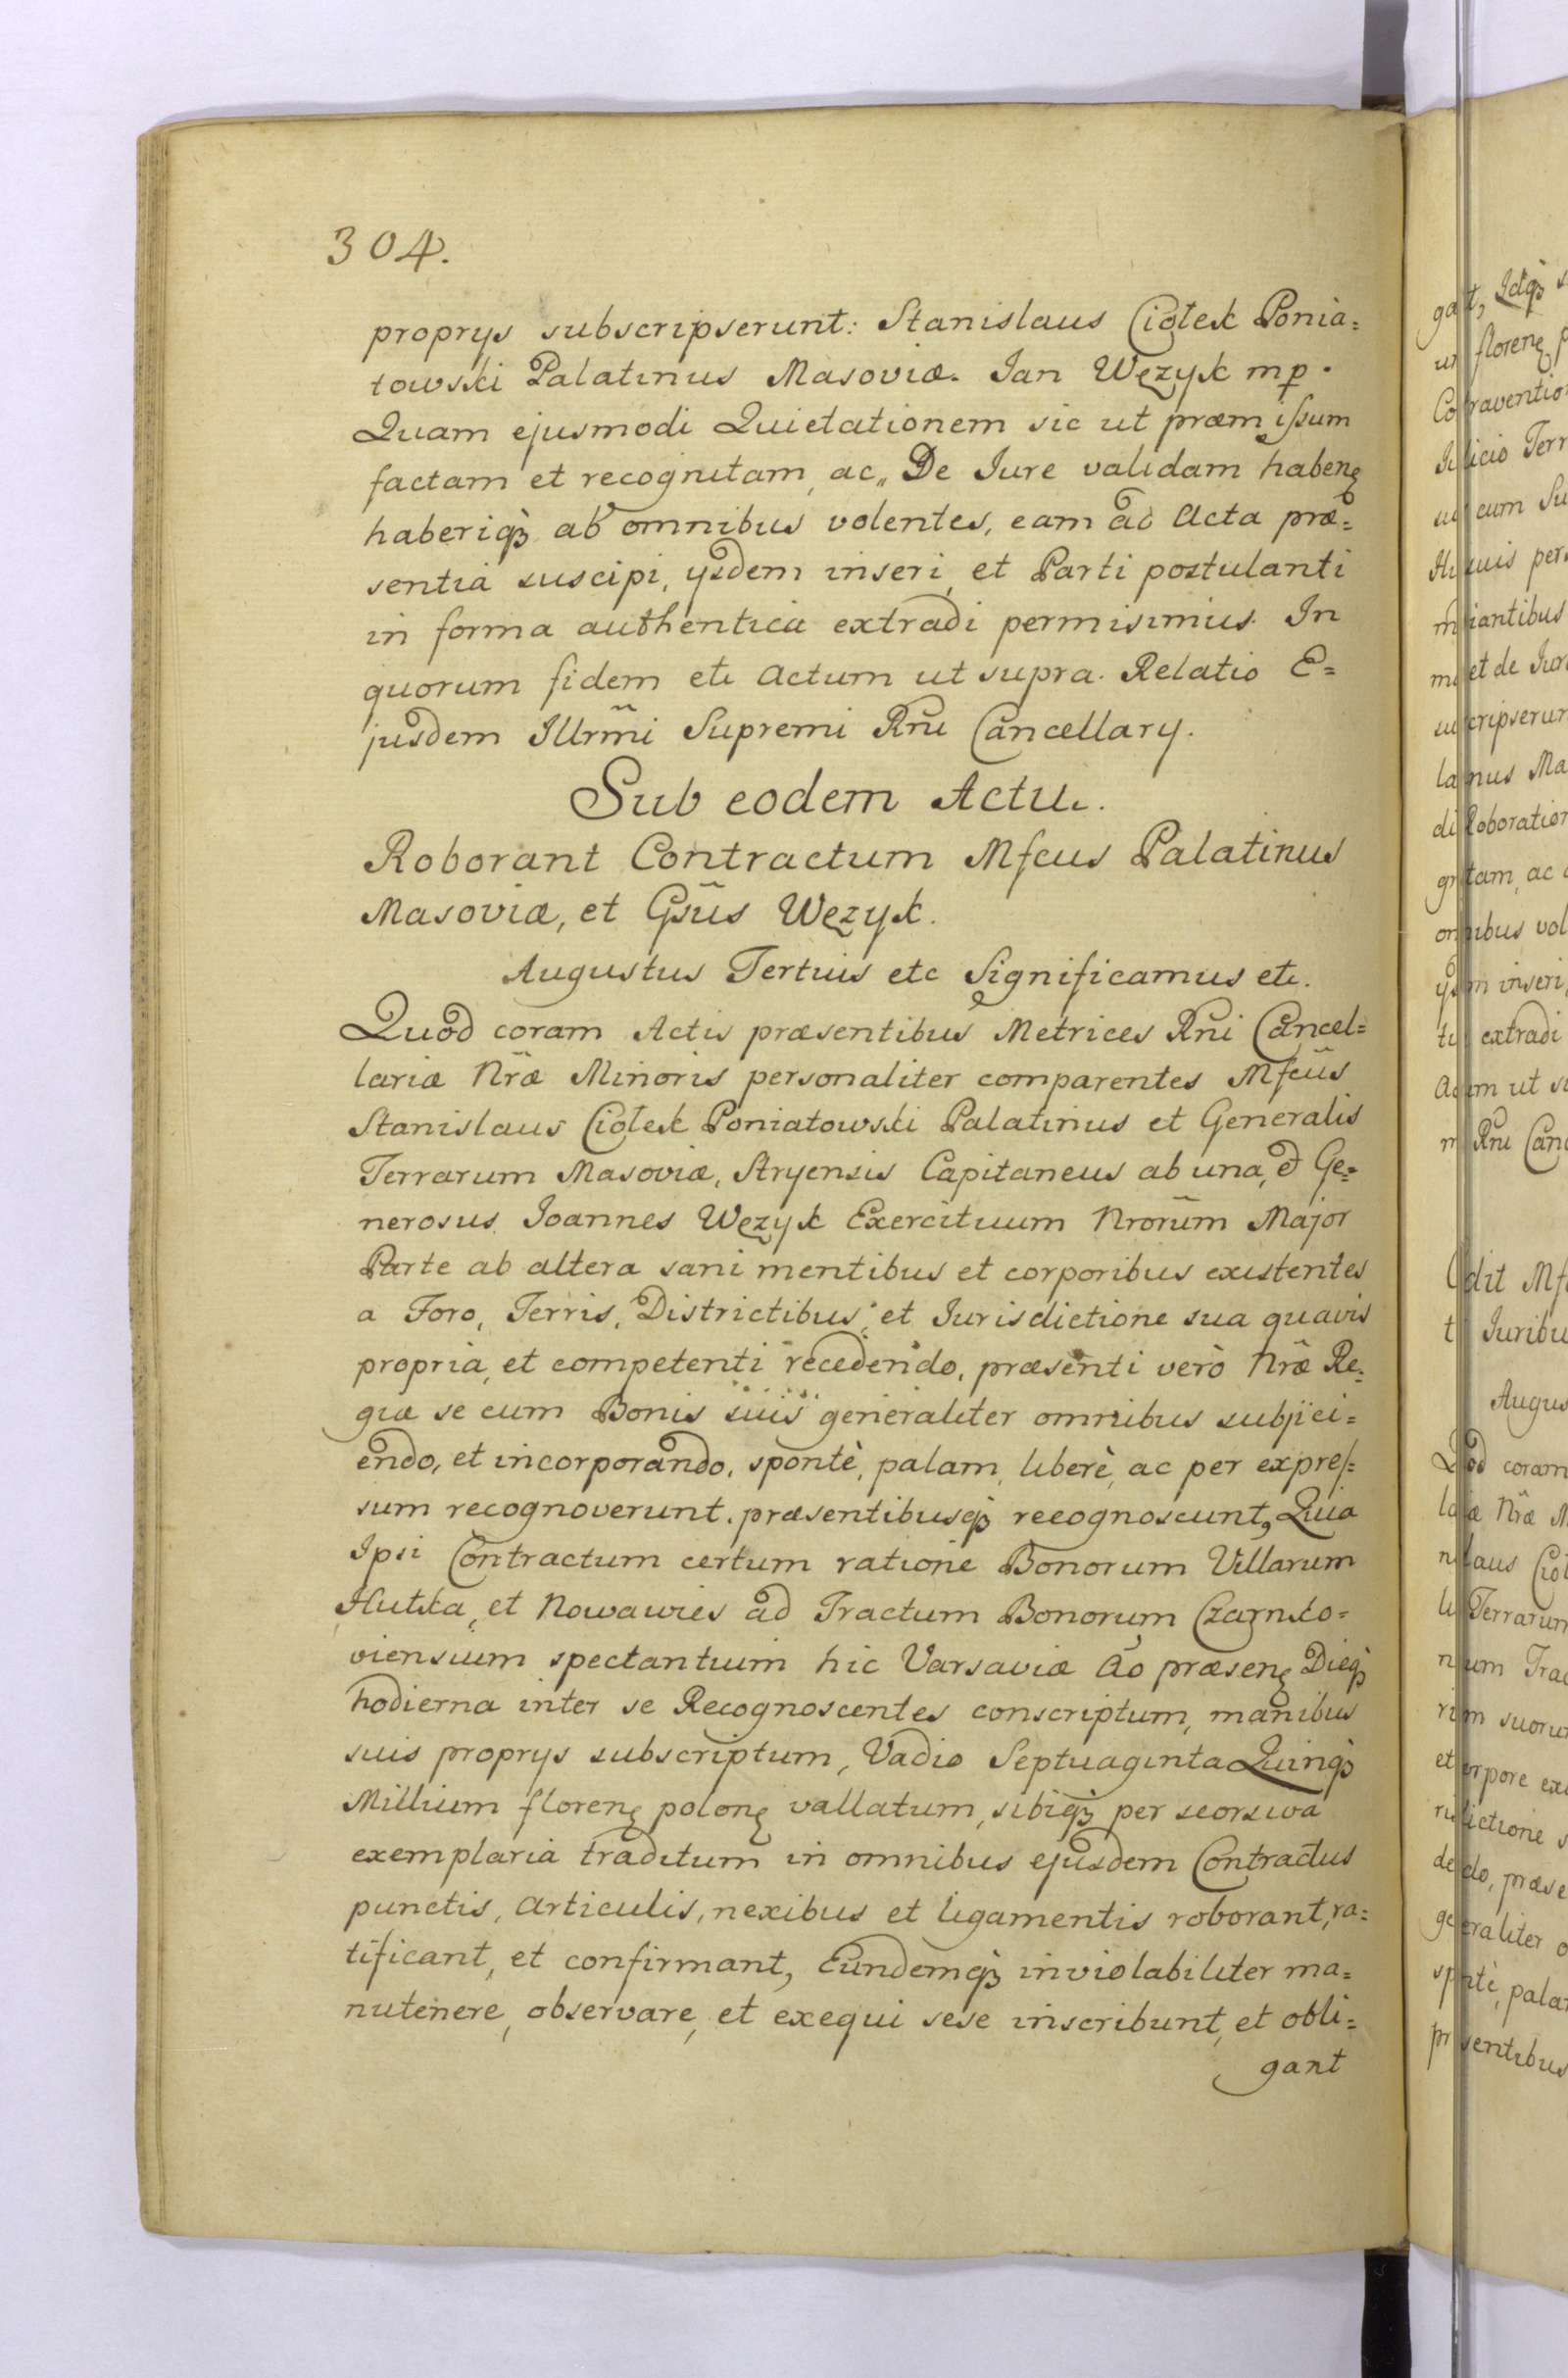 304.
proprys subscripserunt: Stanislaus Ciołek Ponia=
towski Palatinus Masoviæ. Jan Węzyk mp.
Quam ejusmodi Quietationem sic ut præmißum
factam et recognitam, ac„ De Jure validam habenꝫ
haberiqꝫ ab omnibus volentes, eam ad Acta præ=
sentia suscipi, ysdem inseri, et Parti postulanti
in forma authentica extradi permisimus. In
quorum fidem etc Actum ut supra. Relatio E=
jusdem Illrm̃i Supremi Rñi Cancellary.
Sub eodem Actu.
Roborant Contractum Mfcus Palatinus
Masoviæ, et Gsũs Węzyk.
Augustus Tertius etc Significamus etc.
Quod coram Actis præsentibus Metrices Rñi Cancel=
lariæ Nr̃æ Minoris personaliter comparentes Mfcũs
Stanislaus Ciołek Poniatowski Palatinus et Generalis
Terrarum Masoviæ, Stryensis Capitaneus ab una, et Ge=
nerosus Joannes Węzyk Exercituum Nrorum̃ Major
Parte ab altera sani mentibus et corporibus existentes
a Foro, Terris, Districtibus, et Jurisdictione sua quavis
propria, et competenti recedendo, præsenti verò Nr̃æ Re=
giæ se cum Bonis suis generaliter omnibus subjici=
endo, et incorporando, spontè, palam, liberè, ac per expreſ=
sum recognoverunt, præsentibusqꝫ recognoscunt, Quia
Ipsi Contractum certum ratione Bonorum Villarum
Hutka, et Nowawies ad Tractum Bonorum Czarnko=
viensium spectantium hic Varsaviæ Ao præsenꝫ Dieqꝫ
hodierna inter se Recognoscentes conscriptum, manibus
suis proprys subscriptum, Vadio Septuaginta Quinqꝫ
Millium florenꝫ polonꝫ vallatum, sibiqꝫ per seorsiva
exemplaria traditum in omnibus ejusdem Contractus
punctis, articulis, nexibus et ligamentis roborant, ra=
tificant, et confirmant, Eundemqꝫ inviolabiliter ma=
nutenere, observare, et exequi sese inscribunt, et obli=
gant